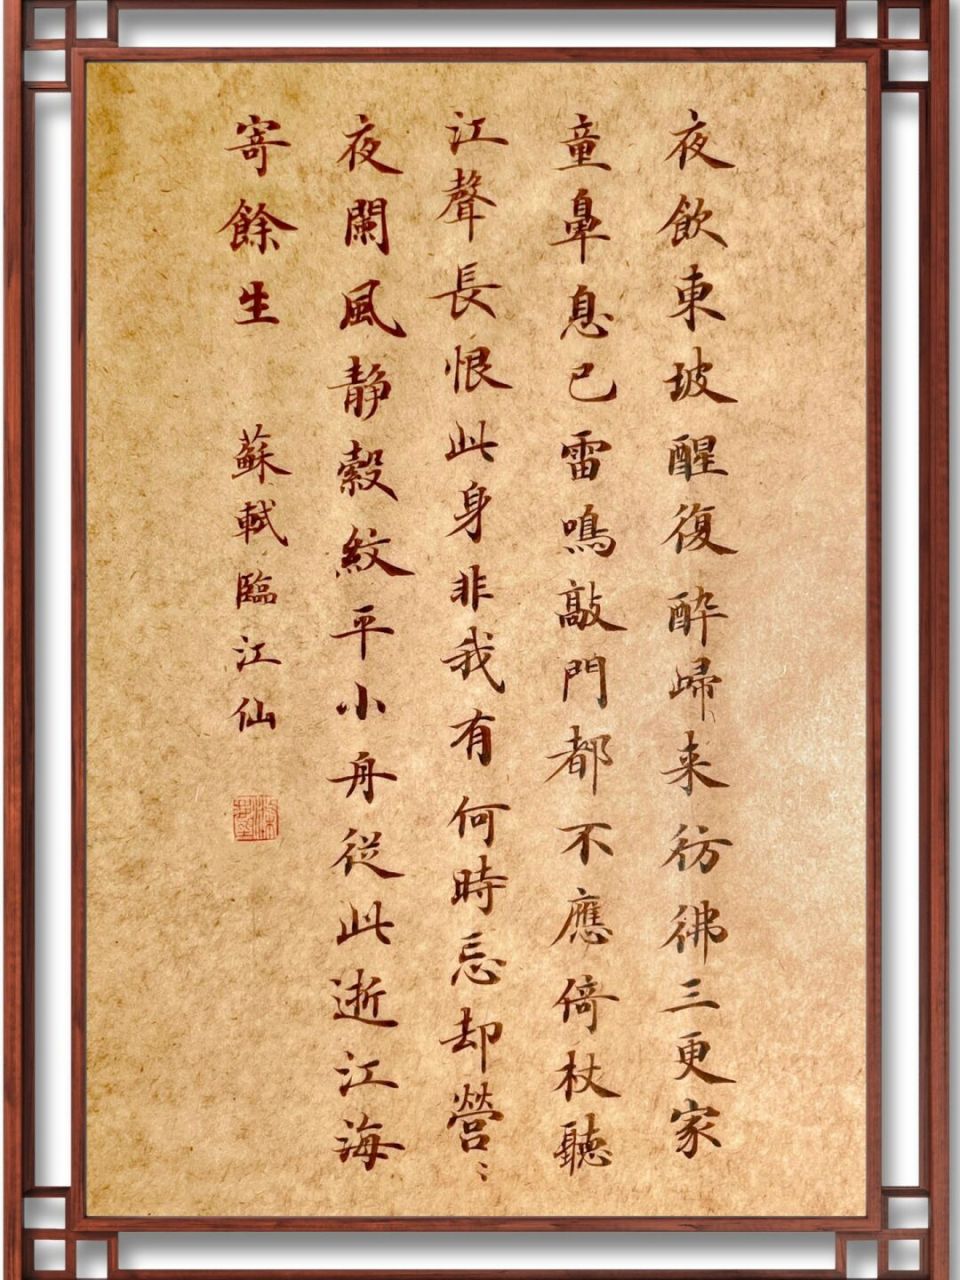 夜飲東坡醒復醉歸来彷彿三更家
童鼻息已雷鳴敲門都不應倚杖聽
江聲長恨此身非我有何時忘却營〻
夜闌風静縠紋平小舟従此逝江海
寄餘生 蘇軾臨江仙